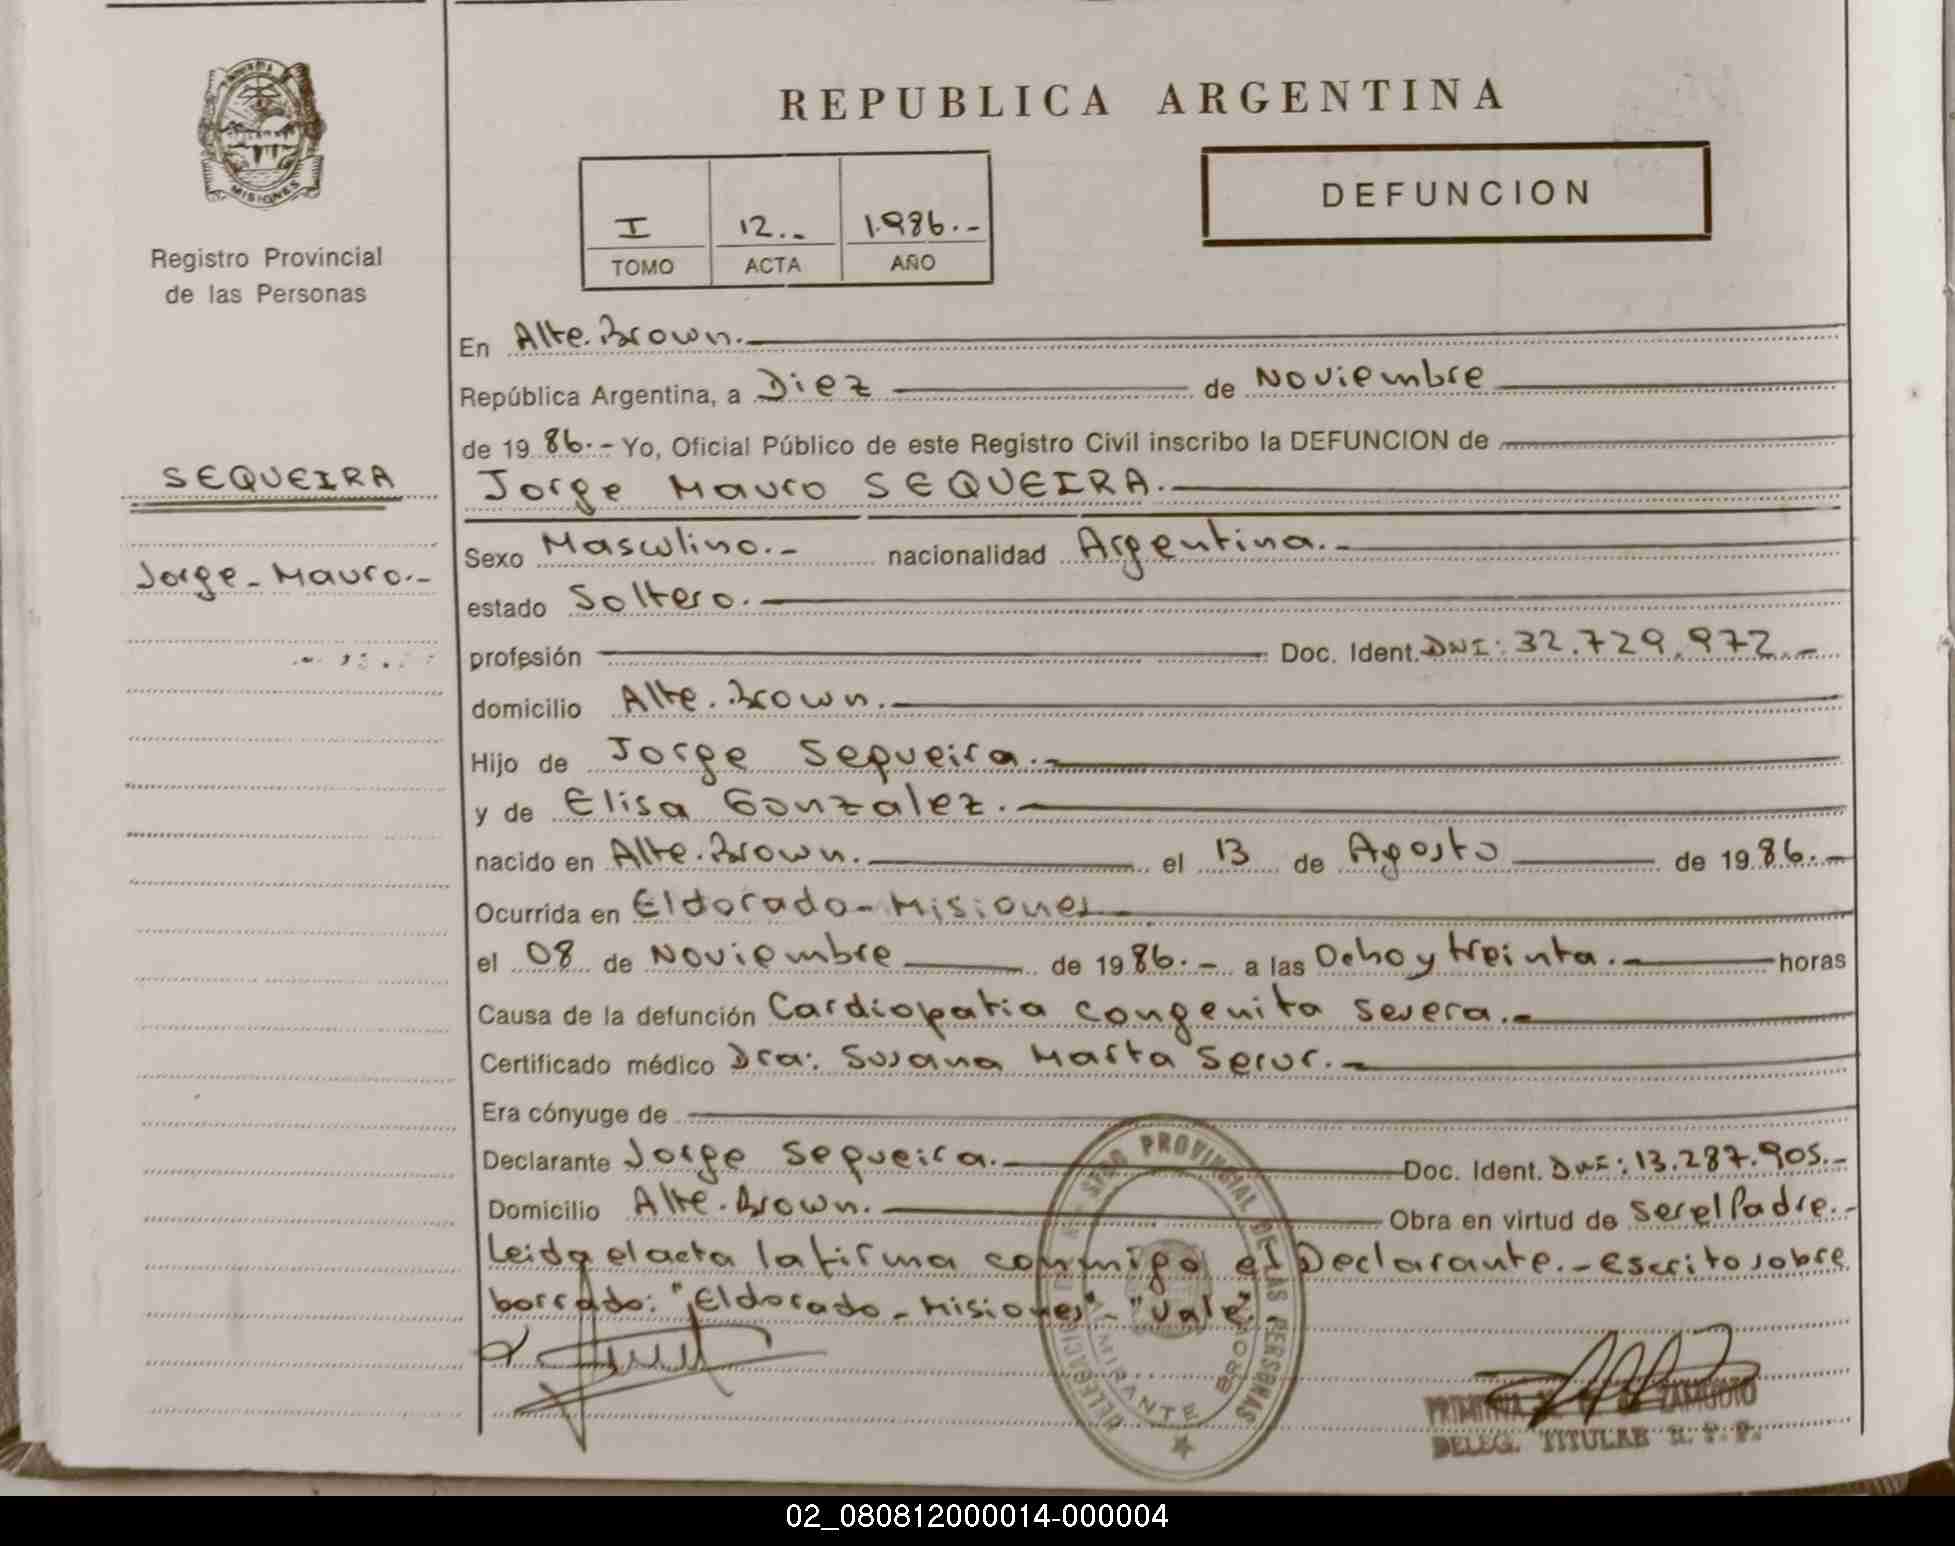 REPUBLICA ARGENTINA
MISIONES
Registro Provincial
de las Personas
I 12.- 1.986.-
TOMO ACTA AÑO
DEFUNCION
SEQUEIRA
Jorge-Mauro.-
En Alte. Brown.
República Argentina, a Diez de Noviembre
de 19 86.- Yo, Oficial Público de este Registro Civil inscribo la DEFUNCION de
Jorge Mauro SEQUEIRA.
Sexo Masculino.- nacionalidad Argentina.-
estado Soltero.
profesión Doc. Ident. DNI: 32.729.972.-
domicilio Alte. Brown.
Hijo de Jorge Sequeira.-
y de Elisa Gonzalez.
nacido en Alte. Brown. el 13 de Agosto de 19 86.-
Ocurrida en Eldorado-Misiones
el 08 de Noviembre de 19 86.- a las Ocho y treinta. horas
Causa de la defunción Cardiopatia congenita severa.-
Certificado médico Dra: Susana Marta Serur.-
Era cónyuge de
Declarante Jorge Sequeira. Doc. Ident. DNI: 13.287.905.-
Domicilio Alte. Brown. Obra en virtud de ser el Padre.-
Leida el acta la firma conmigo el Declarante.- Escrito sobre
borrado: "Eldorado-Misiones"- "Vale"
PROVINCIAL DE LAS PERSONAS
ALMIRANTE BROWN
PRIMITIVA DE ZAMUDIO
DELEG. TITULAR R. P. P.
02_080812000014-000004